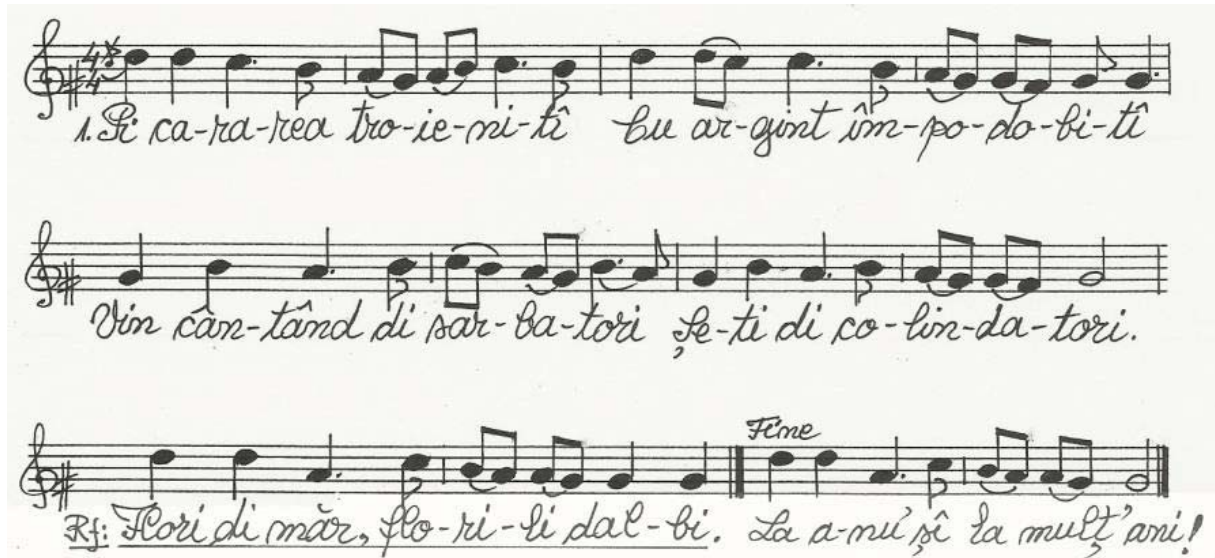 1. Pi ca-ra-rea tro-ie-ni-tî Cu ar-gint îm-po-do-bi-tî
Vin cân-tând di sar-ba-tori Șe-ti di co-lin-da-tori.
Fine
Rf: Flori di măr, flo-ri-li dal-bi. La a-nu' șî la mulț' ani!